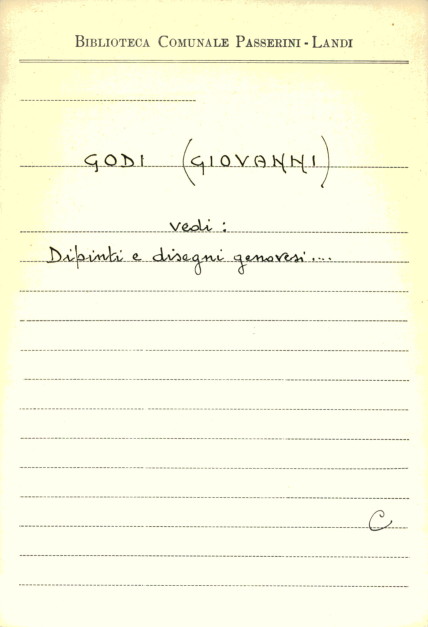 BIBLIOTECA COMUNALE PASSERINI - LANDI
GODI (GIOVANNI)
vedi :
Dipinti e disegni genovesi....
C